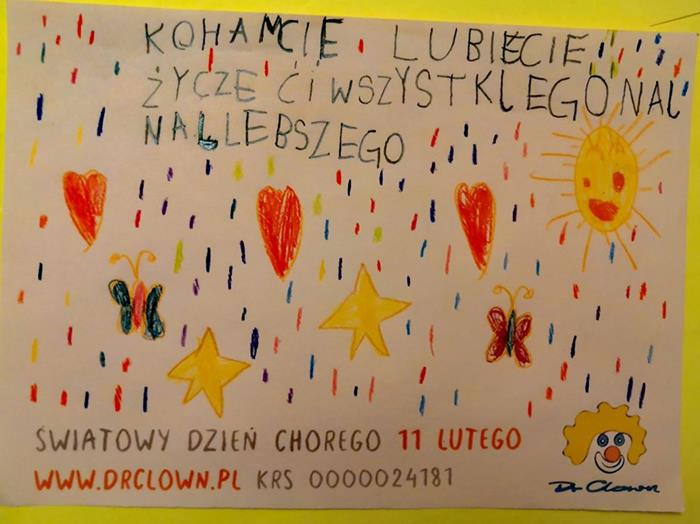 KOHAMCIE LUBIĘCIE
ŻYCZE ĆI WSZYSTKLEGO NAL
NALLEBSZEGO
ŚWIATOWY DZIEŃ CHOREGO 11 LUTEGO
WWW.DRCLOWN.PL KRS 0000024181
Dr Clown